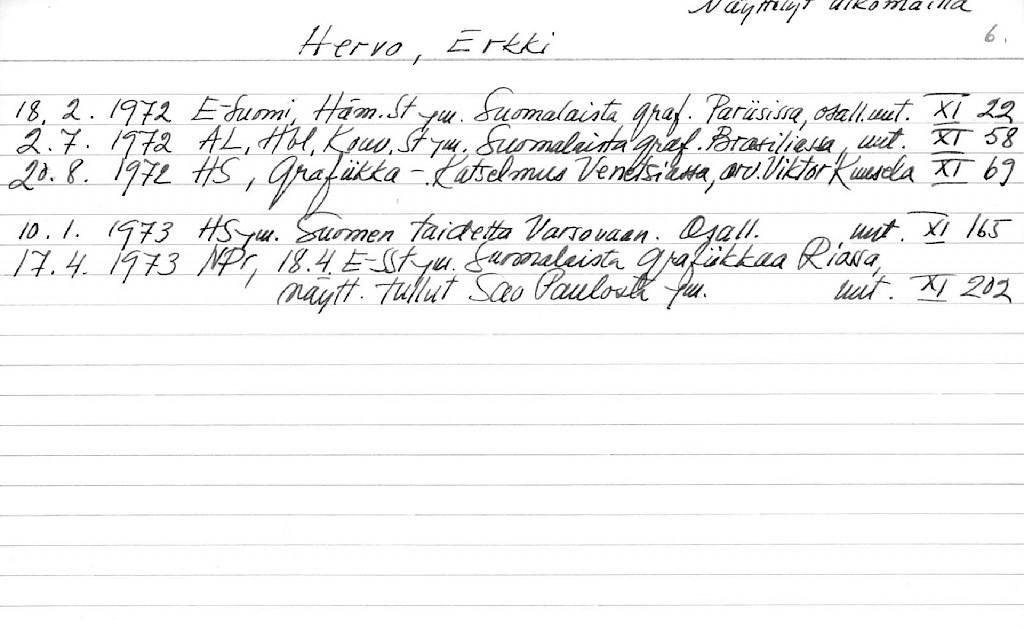 Näyttelyt ulkomailla
6.
Hervo, Erkki
18. 2. 1972 E-Suomi, Häm.St ym. Suomalaista graf. Pariisissa, osall. uut. XI 22
2. 7. 1972 AL, Hbl, Kouv.St ym. Suomalaista graf. Brasiliassa, uut. XI 58
20. 8. 1972 HS, Grafiikka-Katselmus Venetsiassa, arv. Viktor Kuusela XI 69
10. 1. 1973 HS ym. Suomen taidetta Varsovaan. Osall. uut. XI 165
17. 4. 1973 NPr, 18.4. E-SSt ym. Suomalaista grafiikkaa Riassa,
näytt. tullut Sao Paulosta ym. uut. XI 202